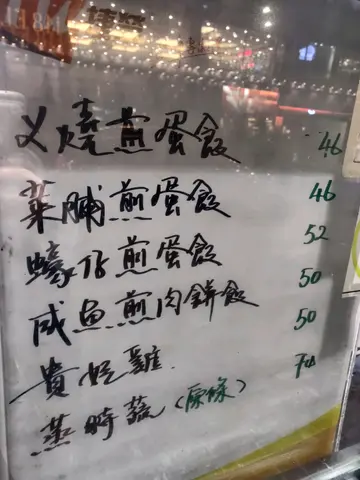 叉燒煎蛋飯 46
菜脯煎蛋飯 46
蠔仔煎蛋飯 52
咸魚煎肉餅飯 50
貴妃雞 50
蒸時蔬(原條)